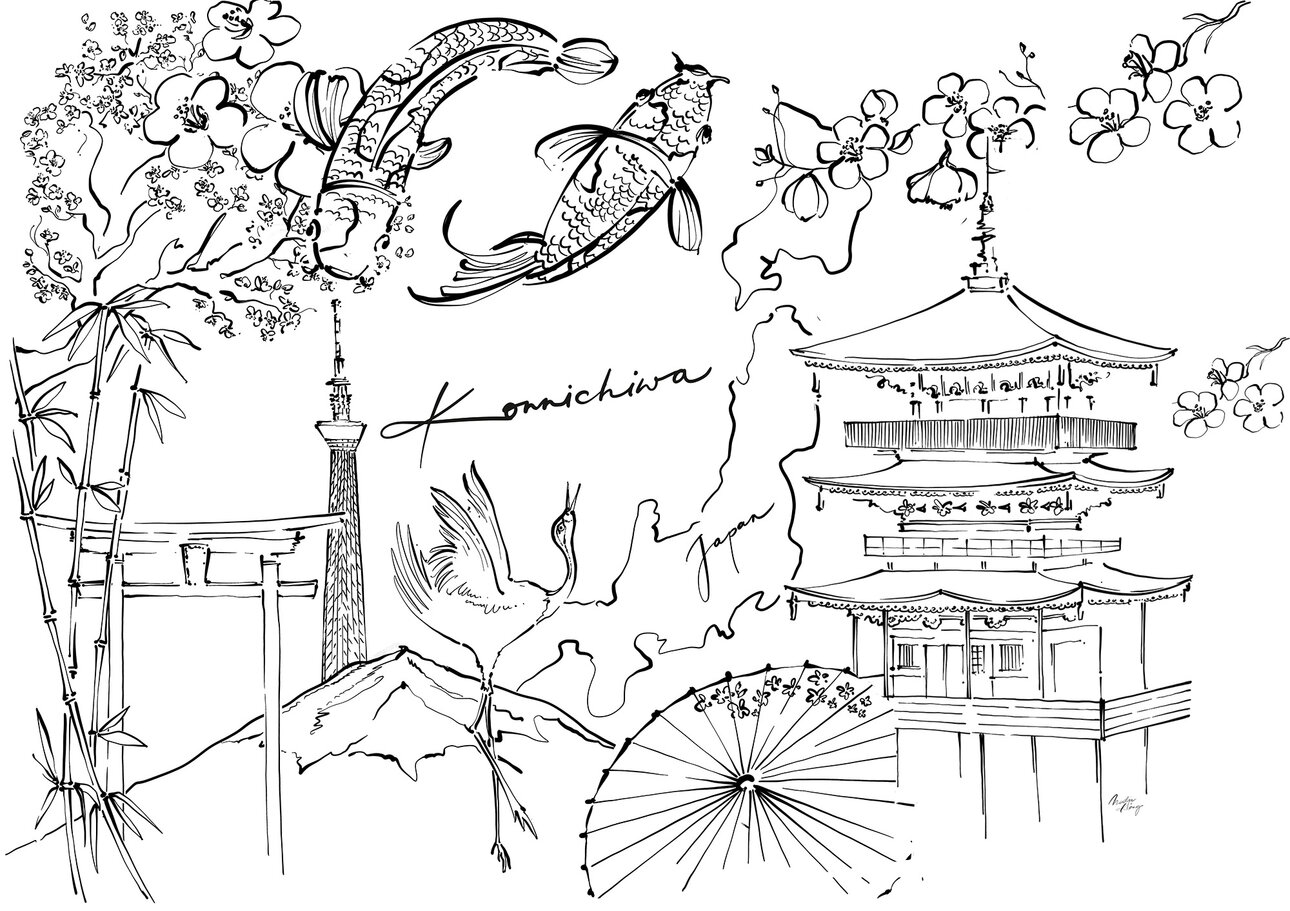 Konnichiwa
Japan